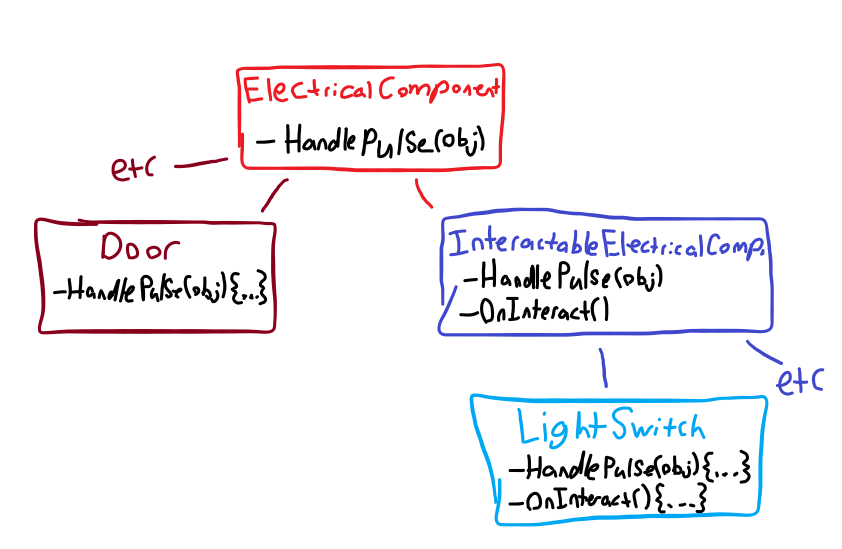 ElectricalComponent
- HandlePulse(obj)
etc
Door
-HandlePulse(obj){...}
InteractableElectricalComp.
-HandlePulse(obj)
-OnInteract()
etc
LightSwitch
-HandlePulse(obj){...}
-OnInteract(){....}